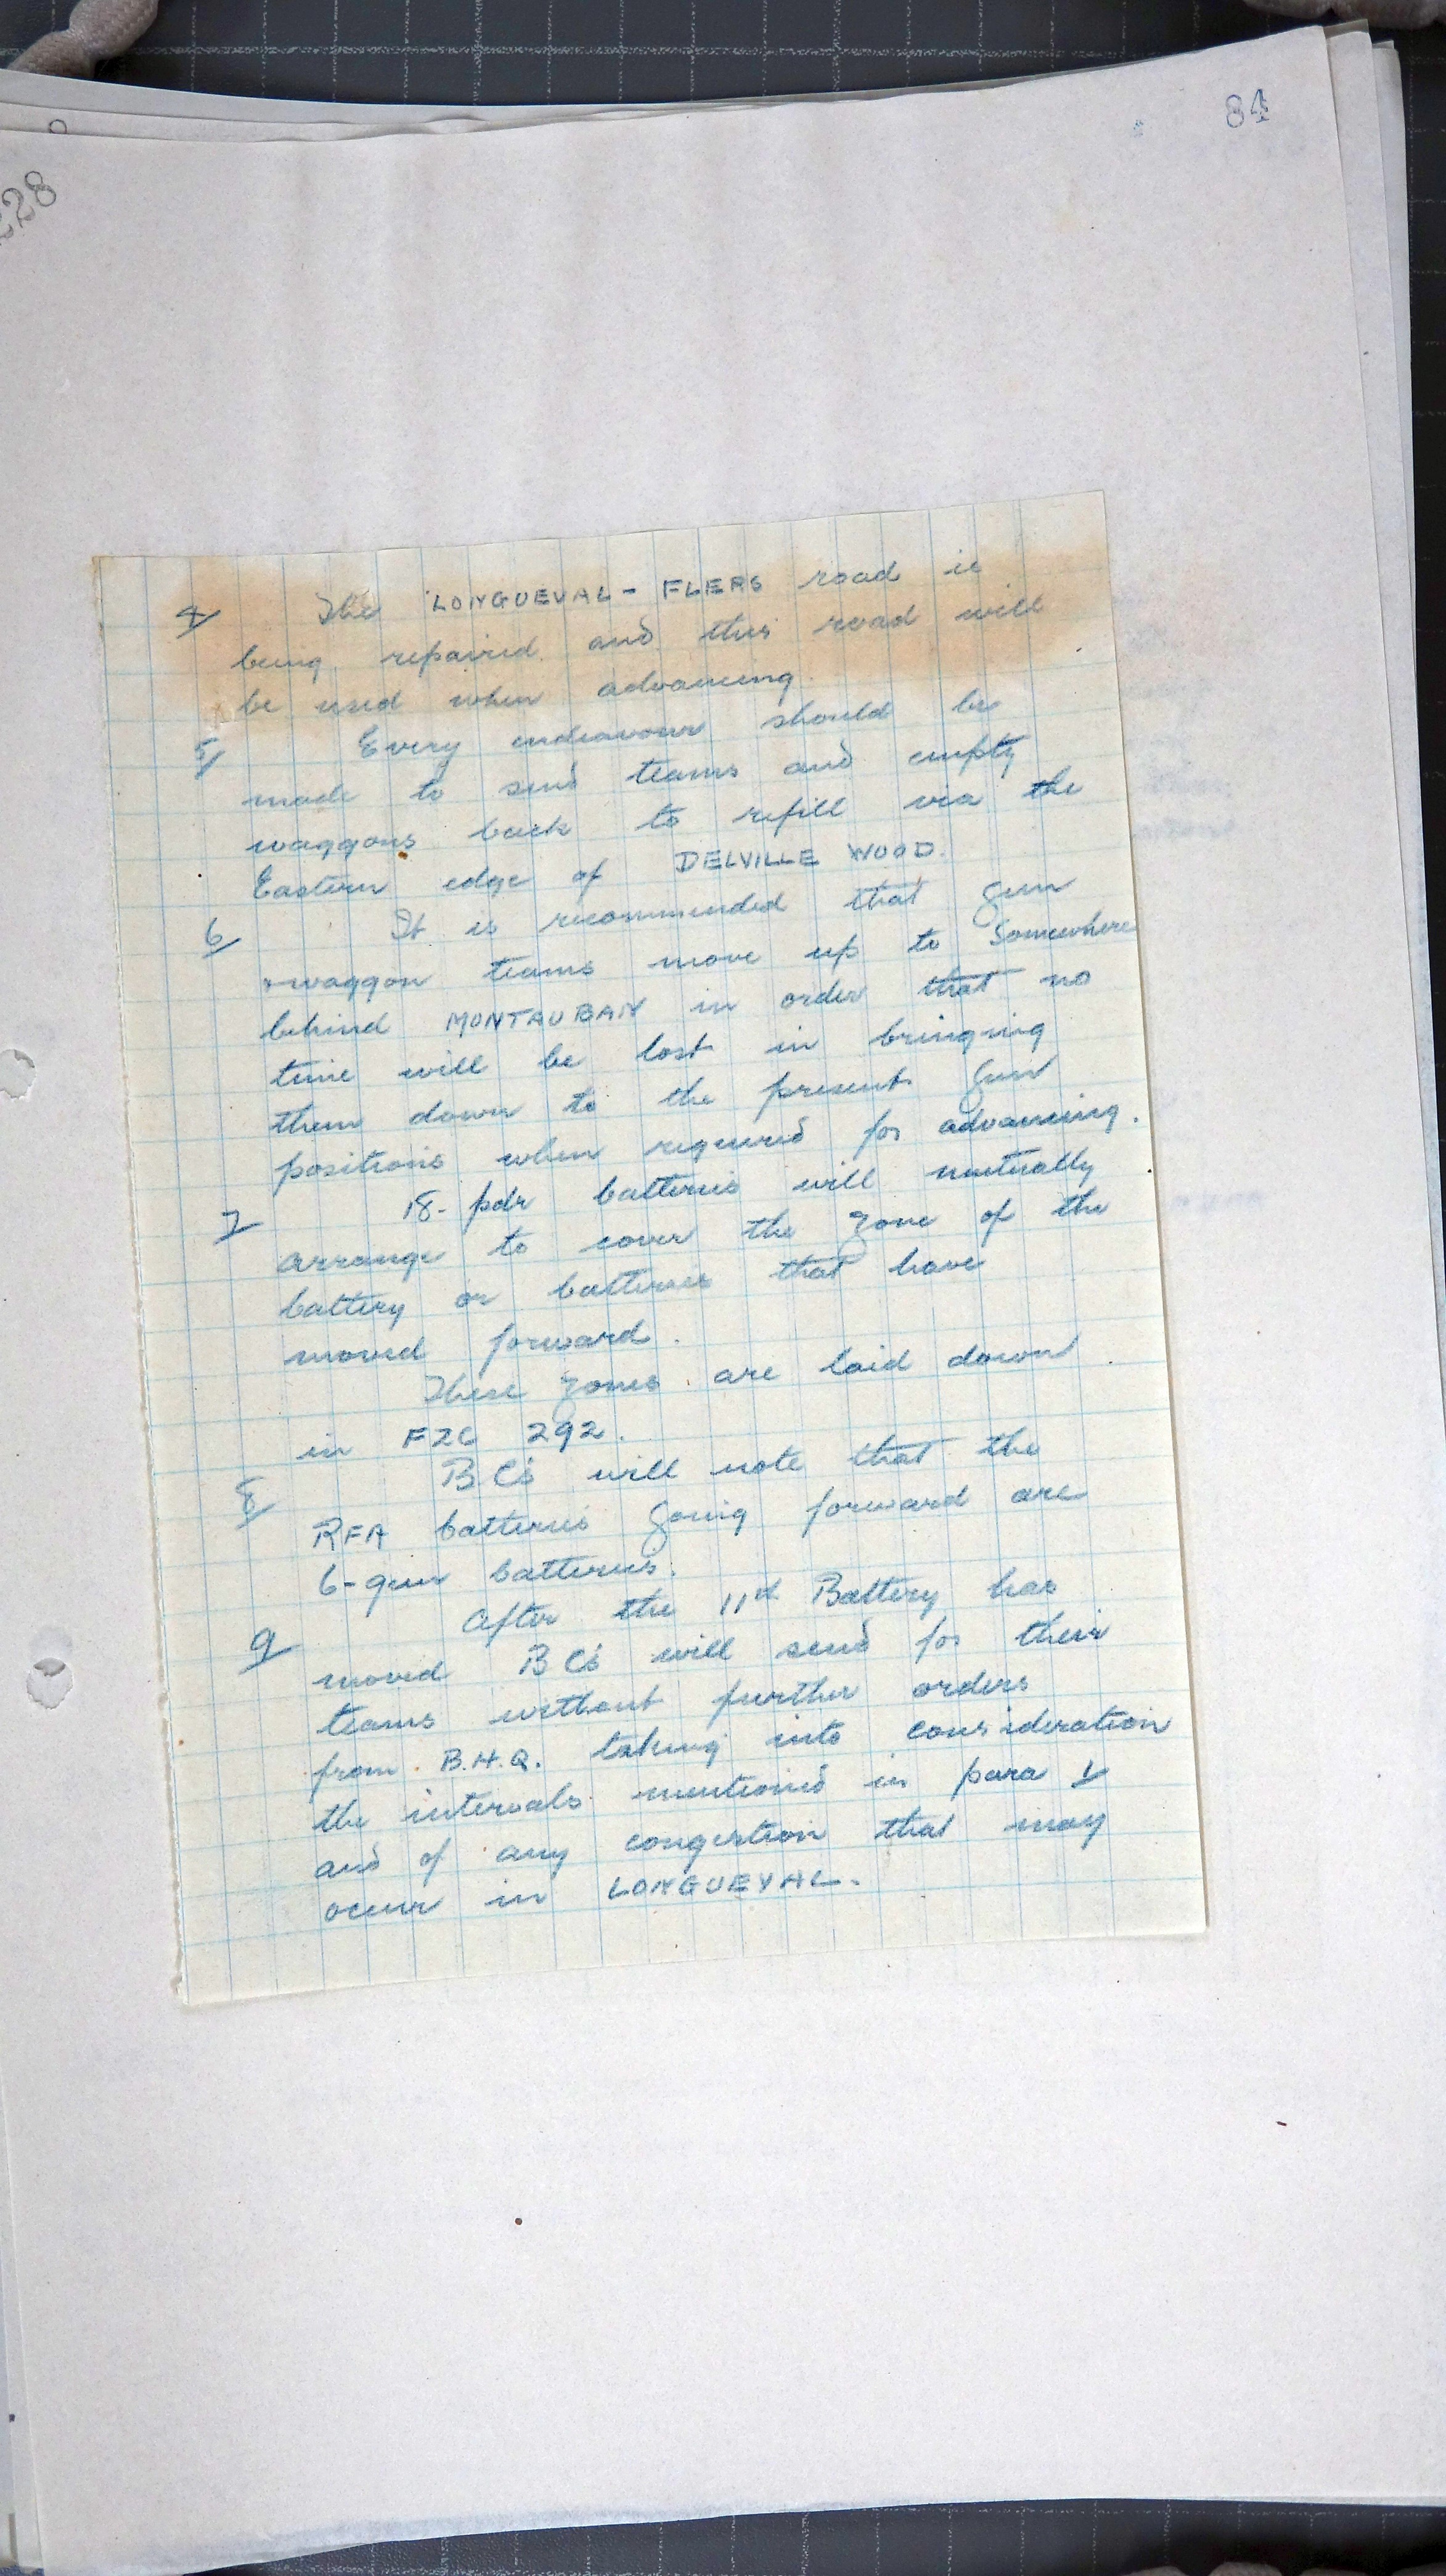 84
228
4/ The LONGUEVAL - FLERS road is
being repaired and this road will
be used when advancing.
5/ Every endeavour should be
made to send teams and empty
waggons back to refill via the
Eastern edge of DELVILLE WOOD.
6/ It is recommended that gun
+ waggon teams move up to somewhere
behind MONTAUBAN in order that no
time will be lost in bringing
them down to the present gun
positions when required for advancing.
7/ 18-pdr batteries will mutually
arrange to cover the zone of the
battery or batteries that have
moved forward.
These zones are laid down
in FZC 292.
8/ BCs will note that the
RFA batteries going forward are
6-gun batteries.
9/ After the 11th Battery has
moved BCs will send for their
teams without further orders
from B.H.Q. taking into consideration
the intervals mentioned in para
and of any congestion that may
occur in LONGUEVAL.